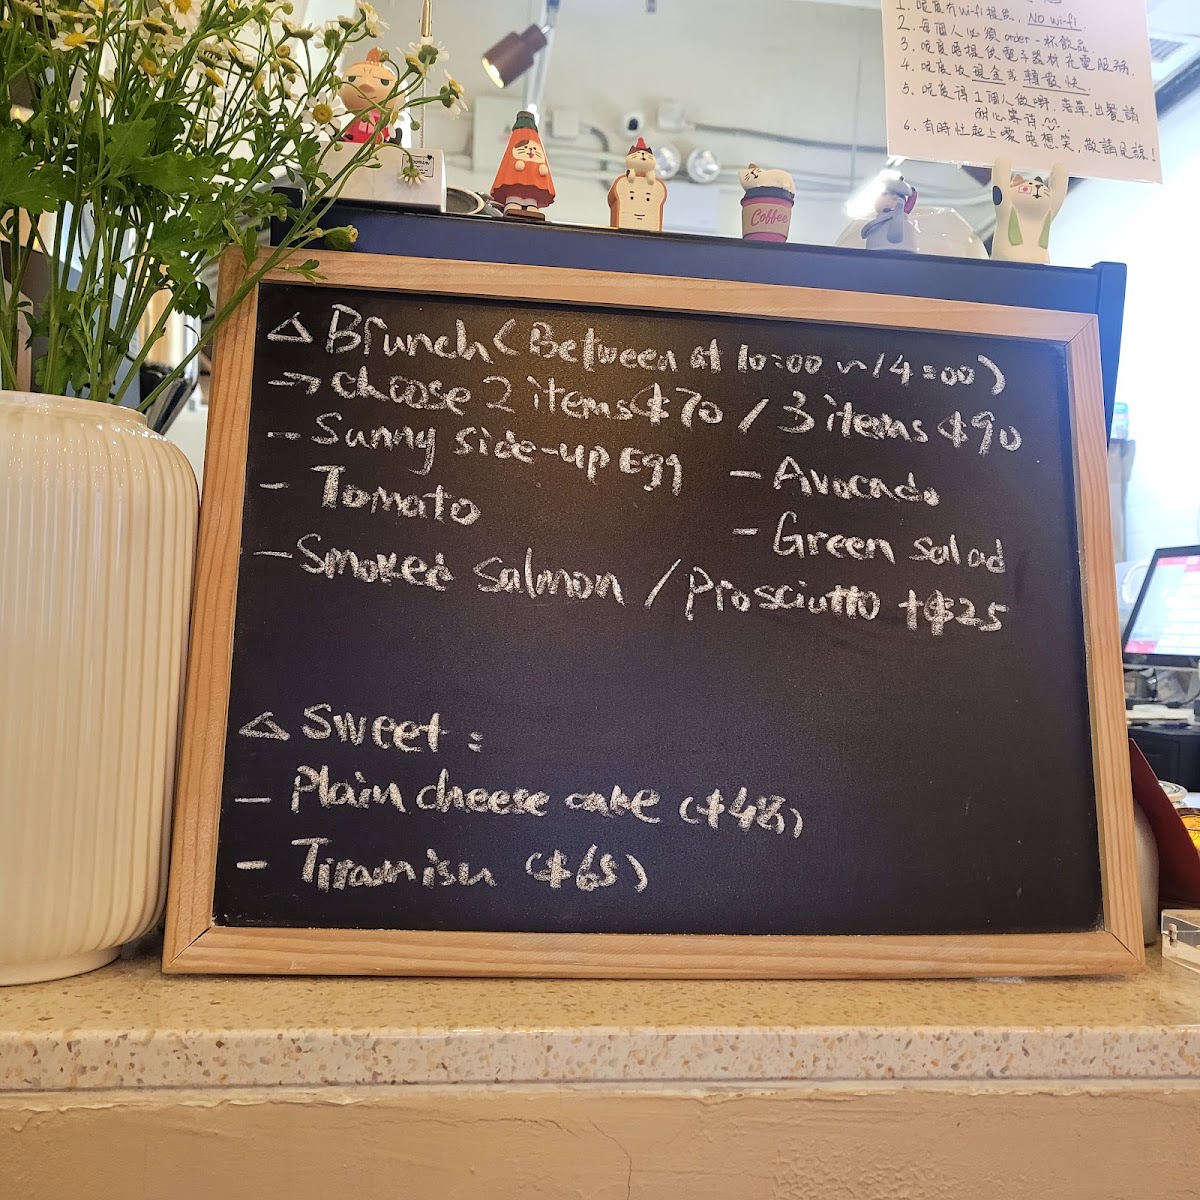 1. 呢度冇wi-fi提供, NO wi-fi.
2. 每個人必須order一杯飲品.
3. 呢度唔提供電子器材充電服務.
4. 呢度收現金或轉數快.
5. 呢度得1個人做嘢, 落單, 出餐請
耐心等待
6. 有時忙起上嚟唔想笑, 敬請見諒!
Coffee
△ Brunch (Between at 10:00 ~ 14:00)
→ choose 2 items $70 / 3 items $90
- Sunny side-up Egg
- Avocado
- Tomato
- Green salad
- Smoked Salmon / Prosciutto +$25
△ Sweet:
- Plain cheese cake ($48)
- Tiramisu ($65)